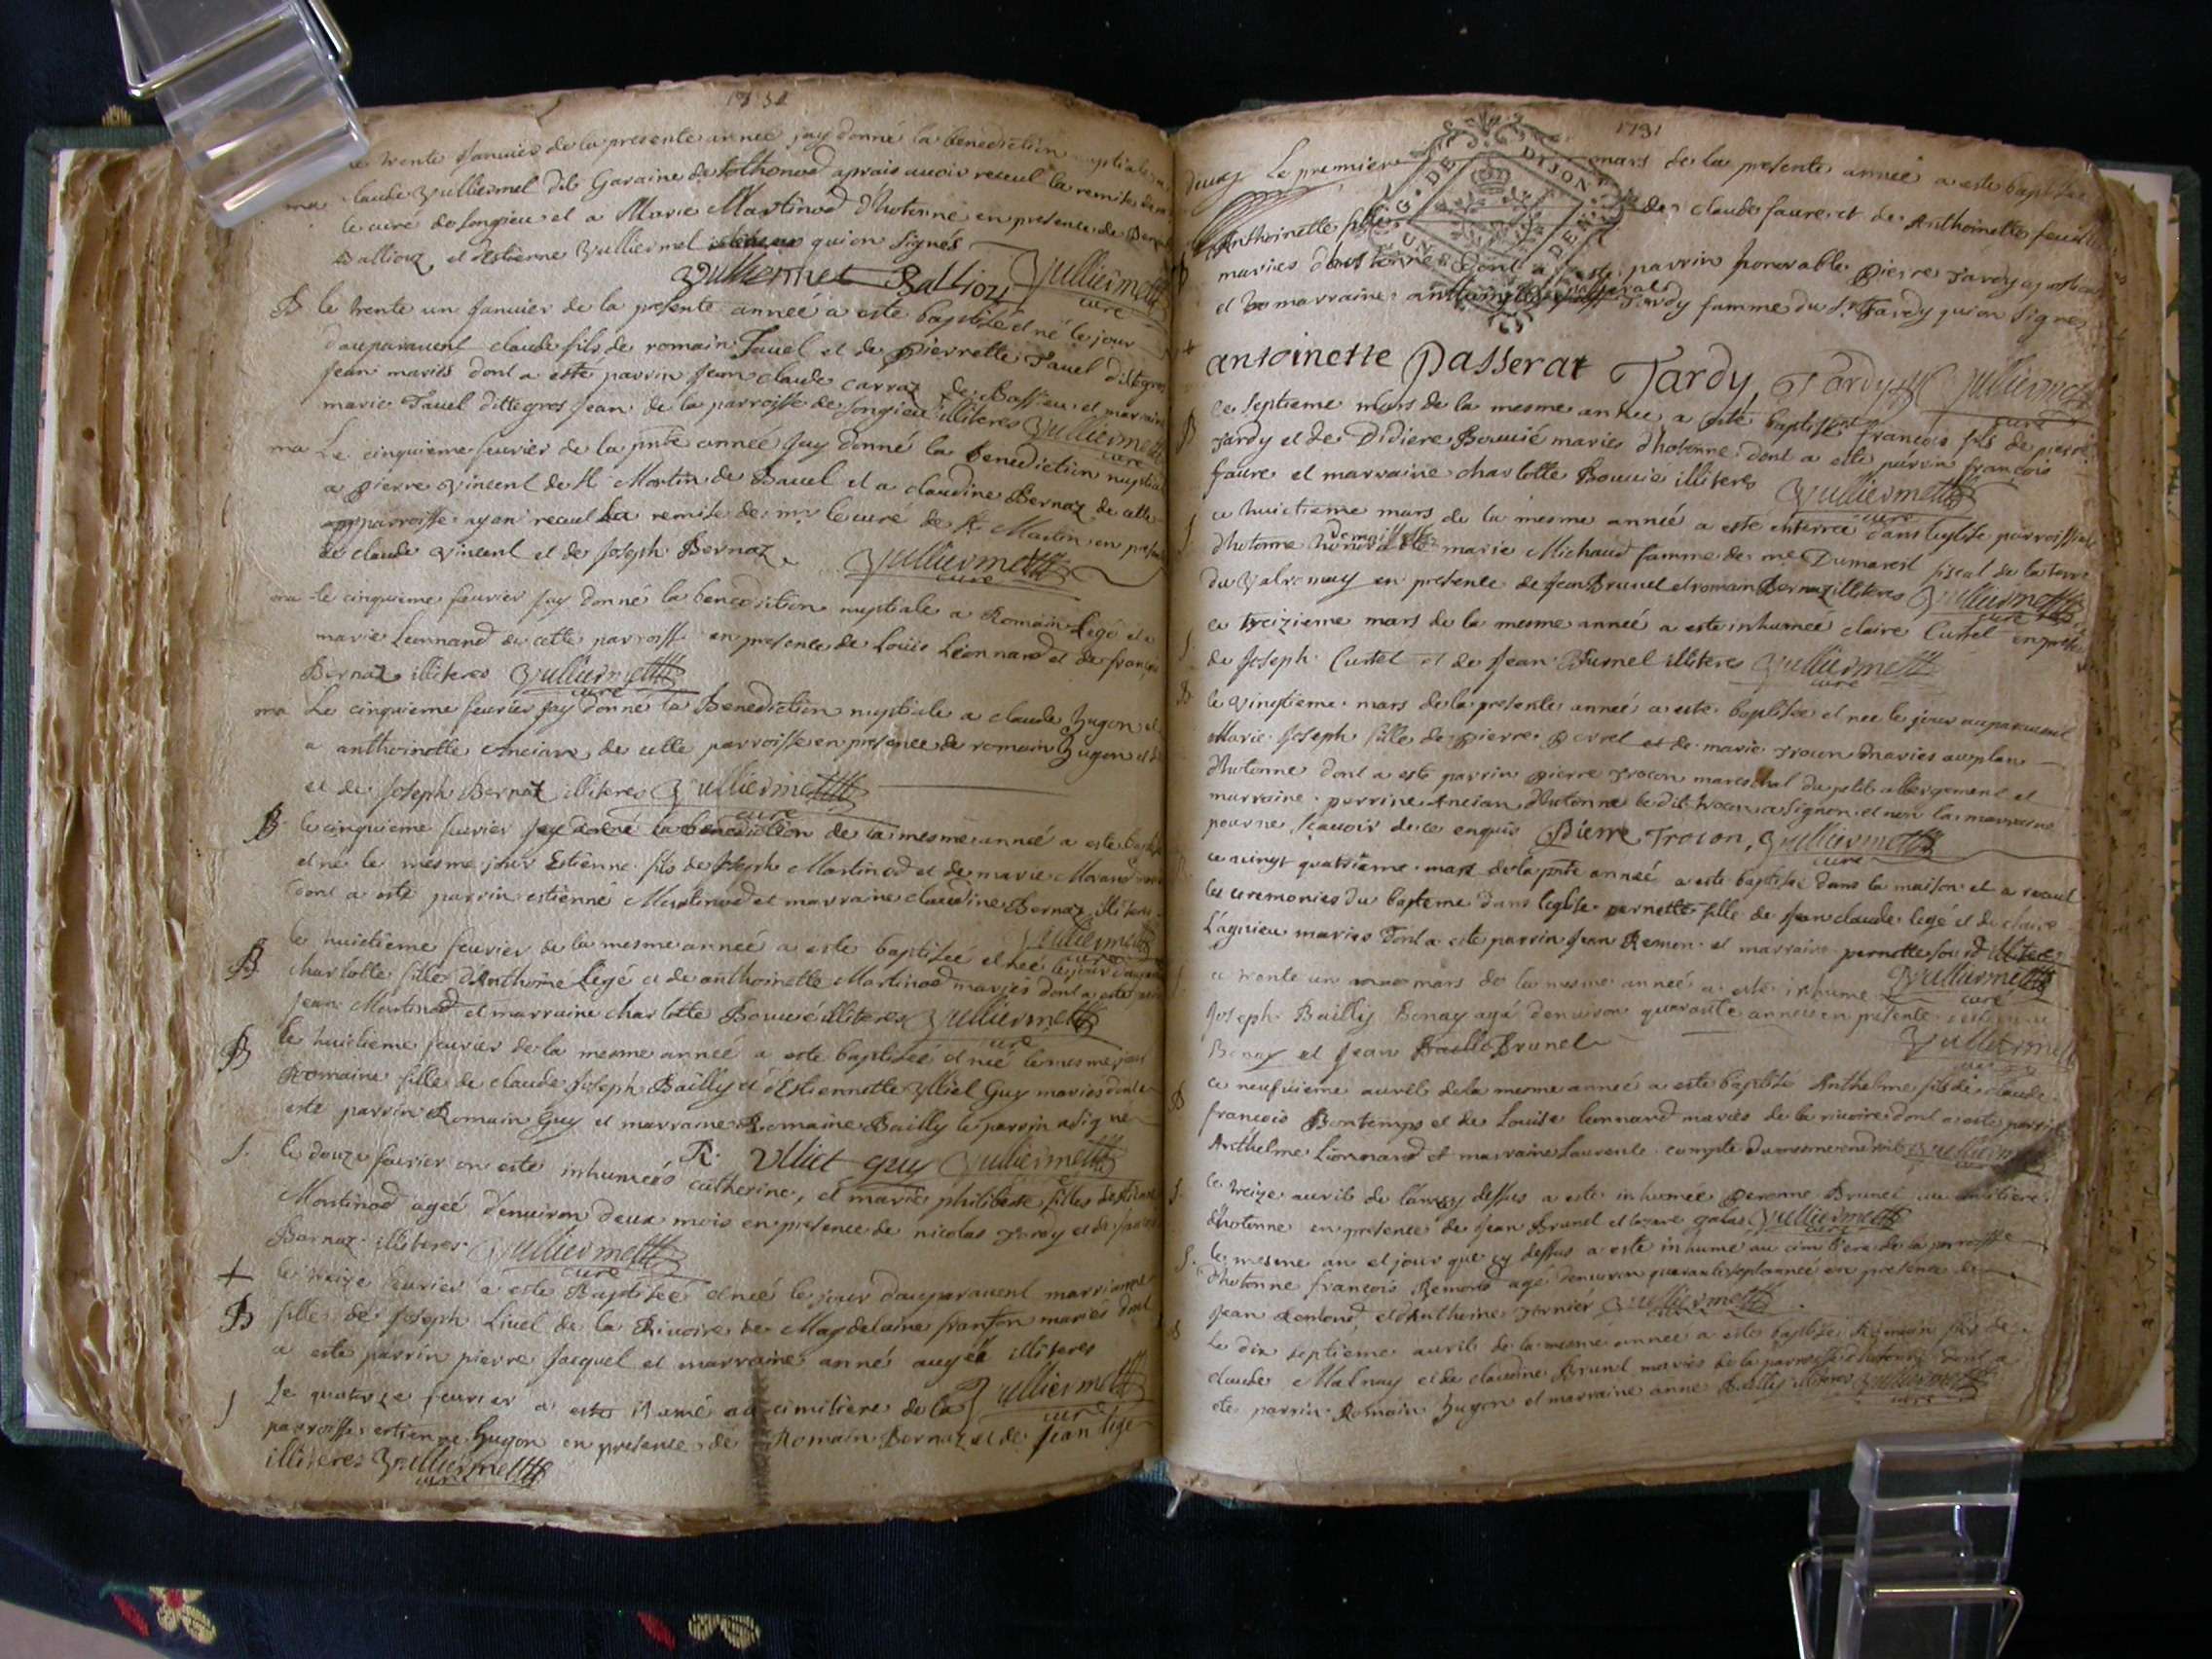 1731
trente Janvier de la presente année jay donné la benediction nuptiale a
ma Claude Vulliermet dit Garaine de Lolhonod aprais avoir receul la remise de
le curé de songieu et a Marie Martinod d'hotonne en presence de
Balliouz et Estienne Vulliermet qui on signés
Vulliermet Balliouz Vulliermet curé
B le trente un Janvier de la presente année a este baptisé et né le jour
dauparavent claude fils de romain Tavel et de Pierrette Tavel dit gros
Jean mariés dont a este parrin Jean claude carraz de Bassieu et marraine
marie Tavel ditte gros Jean de la parroisse de songieu illiteres Vulliermet curé
ma Le cinquieme fevrier de la pnte année Jay donné la benediction nuptiale
a pierre Vincent de St Martin de Bavel et a claudine Bernaz de cette
parroisse ayan receul la remise de mr le curé de St Martin en presence
de claude Vincent et de Joseph Bernaz Vulliermet curé
ma le cinquieme fevrier Jay donné la benediction nuptiale a Romain Legé et a
marie Leonnard de cette parroisse en presence de Louis Léonnard et de françois
Bernaz illiteres Vulliermet curé
ma Le cinquieme fevrier Jay donné la Benediction nuptiale a claude hugon et
a anthoinette Ancian de cette parroisse en presence de romain hugon et de
et de Joseph Bernaz illiteres Vulliermet curé
B le cinquieme fevrier jay donné la benediction de la mesme année a este baptisé
et né le mesme jour Estienne fils de Joseph Martinod et de marie Morand mariés
dont a este parrin estienne Martinod et marraine claudine Bernaz illiteres
Vulliermet curé
B le huictieme fevrier de la mesme année a este baptisée et née le jour dauparavent
charlotte fille d'Anthoine Legé et de anthoinette Martinod mariés dont a este parrin
Jean Martinod et marraine charlotte Bouvié illiteres Vulliermet curé
B le huictieme fevrier de la mesme année a este baptisée et née le mesme jour
Romaine fille de claude Joseph Bailly et d'Estiennette Vlliet Guy mariés dont a
este parrin Romain Guy et marraine Romaine Bailly le parrin a signé
R. Vlliet guy Vulliermet curé
S. le douze fevrier on este inhumées catherine, et marie philiberte filles destienne
Martinod ageé denviron deux mois en presence de nicolas Tardy et de
Bernaz illiteres Vulliermet curé
+ le treize fevrier a este Baptisée et née le jour dauparavent marrianne
B fille de Joseph Livet de la Rivoire et de Magdelaine franton mariés dont
a este parrin pierre Jacquet et marraine anne augée illiteres
Vulliermet curé
S Le quatorze fevrier a este inumé au cimitiere de la
parroisse estienne hugon en presence de Romain Bernaz et de Jean legé
illiteres Vulliermet curé
1731
G. DE DIJON
UN DEN
deux Le premier mars de la presente année a este baptisée
Anthoinette fille de claude faure et de Anthoinette
mariés d'hotonne dont a este parrin honorable pierre Tardy
et marraine anthoinette passerat Tardy famme du Sr Tardy qui on signes
antoinette Passerat Tardy Tardy Vulliermet curé
B le septieme mars de la mesme année a este baptisé françois fils de pierre
Tardy et de Didiere Bouvié mariés dhotonne dont a este parrin françois
faure et marraine charlotte Bouvié illiteres Vulliermet curé
S ce huictieme mars de la mesme année a este enterrée dans leglise parroissiale
d'hotonne demoiselle marie Michaud famme de me Dumareil fiscal de la terre
du Valromey en presence de Jean Brunel et romain Bernaz illiteres Vulliermet curé
S. ce treizieme mars de la mesme année a este inhumée claire Curtet en presence
de Joseph Curtet et de Jean Burnel illiteres Vulliermet curé
B le vingtieme mars de la presente année a este baptisée et née le jour auparavent
Marie Joseph fille de pierre perret et de marie Trocon mariés au plan
d'hotonne dont a este parrin pierre trocon mareschal du petit abbergement et
marraine perrine Ancian d'hotonne le dit trocon a signé et non la marraine
pour ne scavoir de ce enquis Pierre Trocon, Vulliermet curé
ce vingt quatrieme mars de la pnte année a este baptisé dans la maison et a receul
les ceremonies du bapteme dans leglise pernette fille de Jean claude legé et de claire
Lagnieu mariés dont a este parrin Jean Remon et marraine pernette illiteres
Vulliermet curé
ce trente un mars de la mesme année a este inhumé
Joseph Bailly Bonay agé denviron quarante années en presence
Bonay et Jean Brunel Vulliermet
B ce neufvieme avril de la mesme année a este baptisé Anthelme fils de claude
francois Bontemps et de Louise leonnard mariés de la rivoire dont a este parrin
Anthelme Lionnard et marraine Laurente compte Vulliermet
S. le treize avril de lan cy dessus a este inhumée Peronne Brunel au cimitiere
d'hotonne en presence de Jean Brunel et lazare galas Vulliermet curé
S. le mesme an et jour que cy dessus a este inhumé au cimitiere de la parroisse
d'hotonne françois Remond agé denviron quarante sept année en presence de
Jean Remond et d'Anthoine Vulliermet
B Le dix septieme avril de la mesme année a este baptisé Romain fils de
claude Malnay et de claudine Brunel mariés de la parroisse d'hotonne dont a
ete parrin Romain hugon et marraine anne Bailly illiteres Vulliermet curé